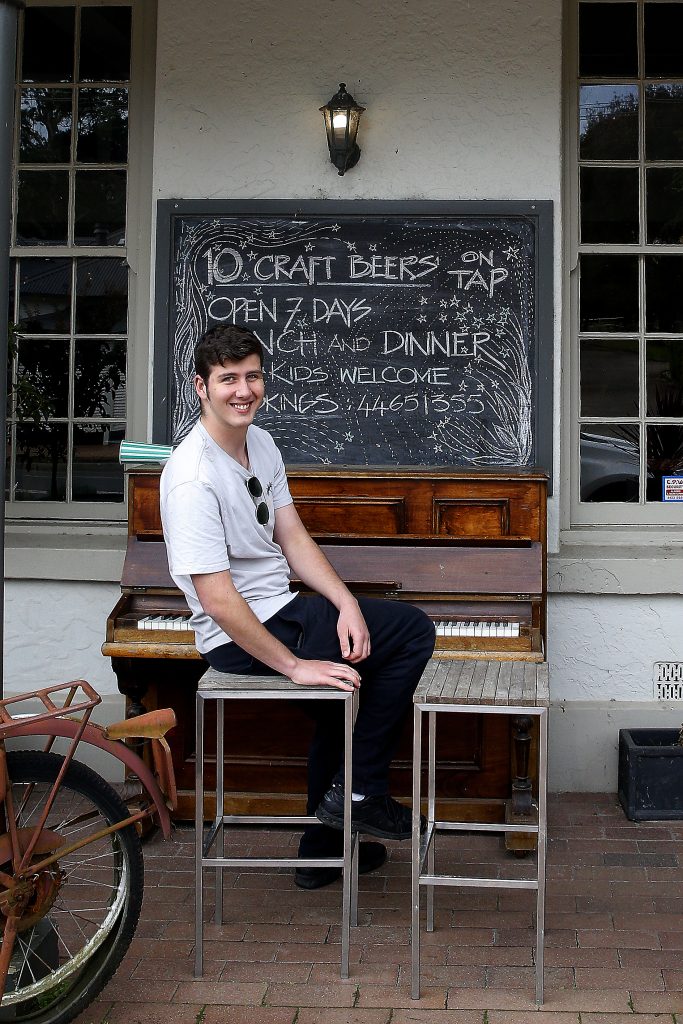 10 CRAFT BEERS ON TAP
OPEN 7 DAYS
AND DINNER
KIDS WELCOME
44651355